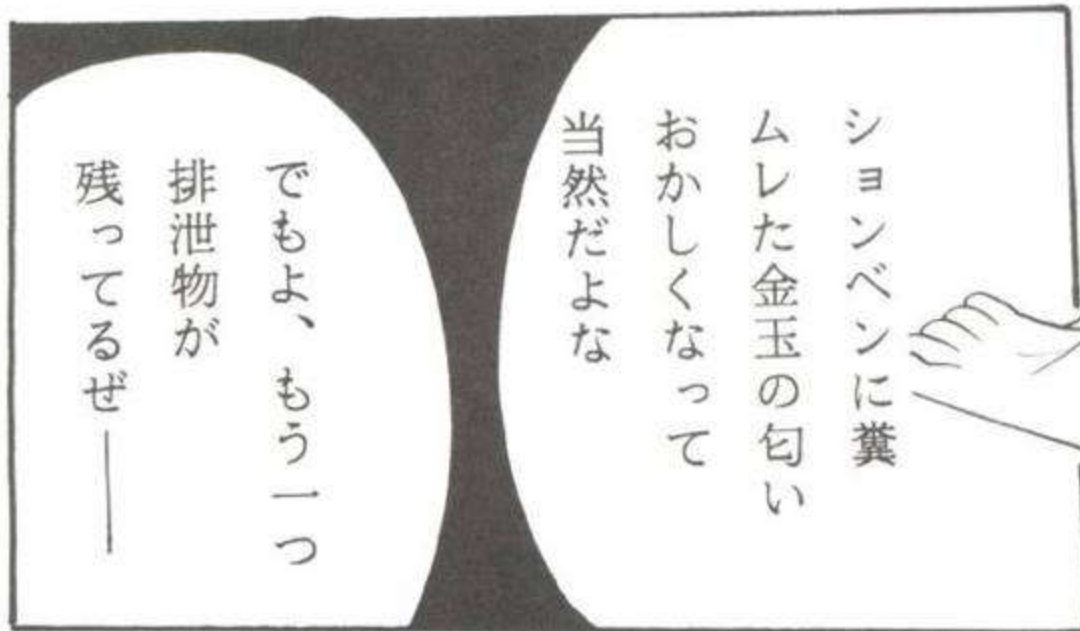 ションベンに糞
ムレた金玉の匂い
おかしくなって
当然だよな
でもよ、もう一つ
排泄物が
残ってるぜ――